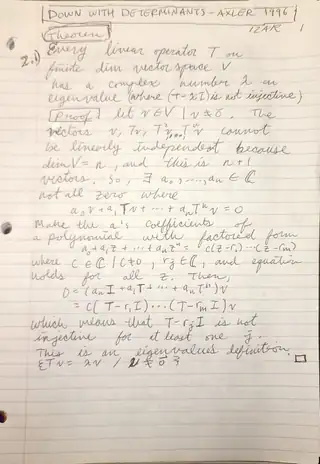 DOWN WITH DETERMINANTS - AXLER 1996
IZAK 1
Theorem
2.1) Every linear operator T on
finite dim vector space V
has a complex number λ an
eigenvalue (where (T-λI) is not injective)
Proof let v∈V | v≠0. The
vectors v, Tv, T²v, ..., Tⁿv cannot
be linearly independent because
dim V = n, and this is n+1
vectors. So, ∃ a₀, ..., aₙ ∈ ℂ
not all zero where
a₀v + a₁Tv + ··· + aₙTⁿv = 0
Make the a's coefficients of
a polynomial with factored form
a₀ + a₁z + ··· + aₙzⁿ = c(z-r₁) ··· (z-rₘ)
where c ∈ ℂ | c≠0, rⱼ ∈ ℂ, and equation
holds for all z. Then,
0 = (a₀I + a₁T + ··· + aₙTⁿ)v
= c(T-r₁I) ··· (T-rₘI)v
which means that T-rⱼI is not
injective for at least one j.
This is an eigenvalues definition.
{Tv = λv / v ≠ 0⃗} □